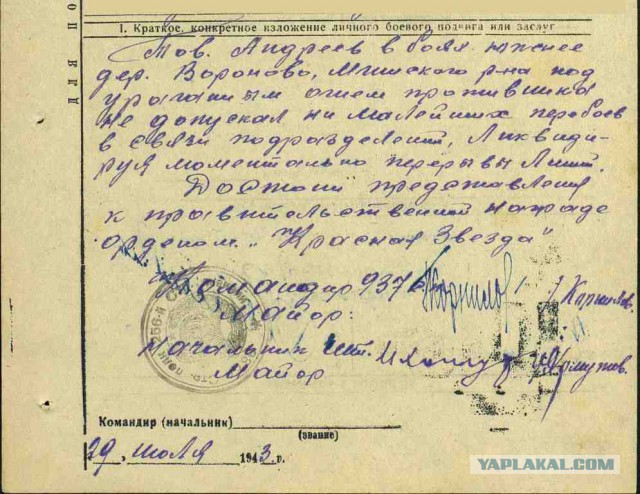 I. Краткое, конкретное изложение личного боевого подвига или заслуг
Тов. Андреев в боях южнее
дер. Вороново, Мгинского р-на под
ураганным огнем противника
не допускал ни малейших перебоев
в связи подразделений, ликвиди-
руя моментально перерывы линий.
Достоин представления
к правительственной награде
орденом „Красная Звезда"
Командир 937
Майор:
Начальник шт.
Майор
Командир (начальник)
(звание)
29 июля 1943 г.
YAPLAKAL.COM